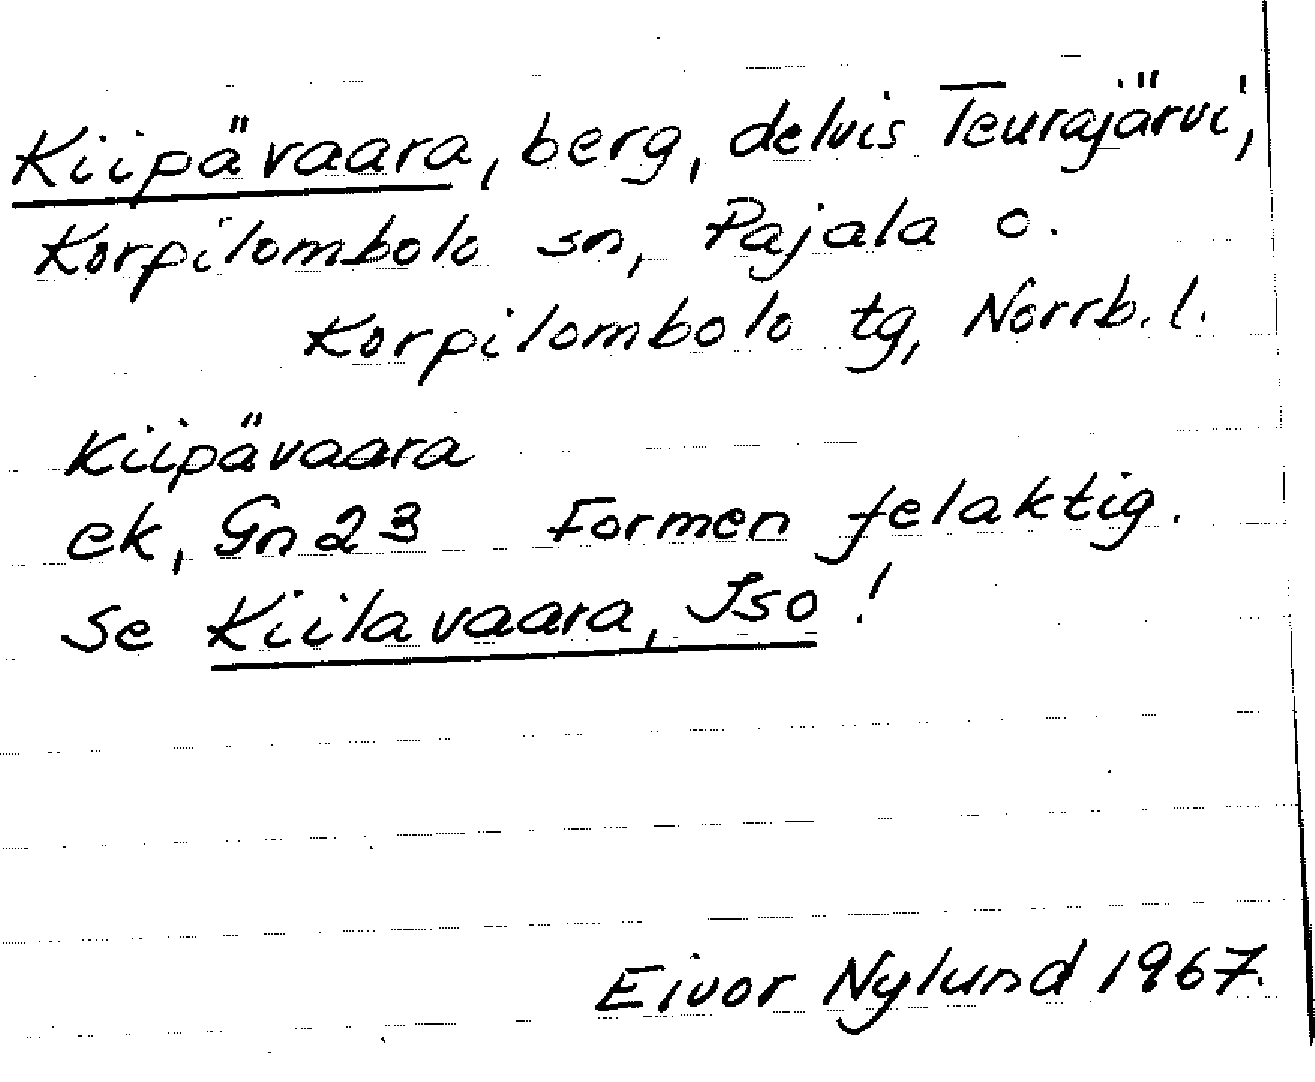 Kiipävaara, berg, delvis Teurajärvi,
Korpilombolo sn, Pajala o.
Korpilombolo tg, Norrb. l.
Kiipävaara
ek, Gn 23 Formen felaktig.
Se Kiilavaara, Iso!
Eivor Nylund 1967.